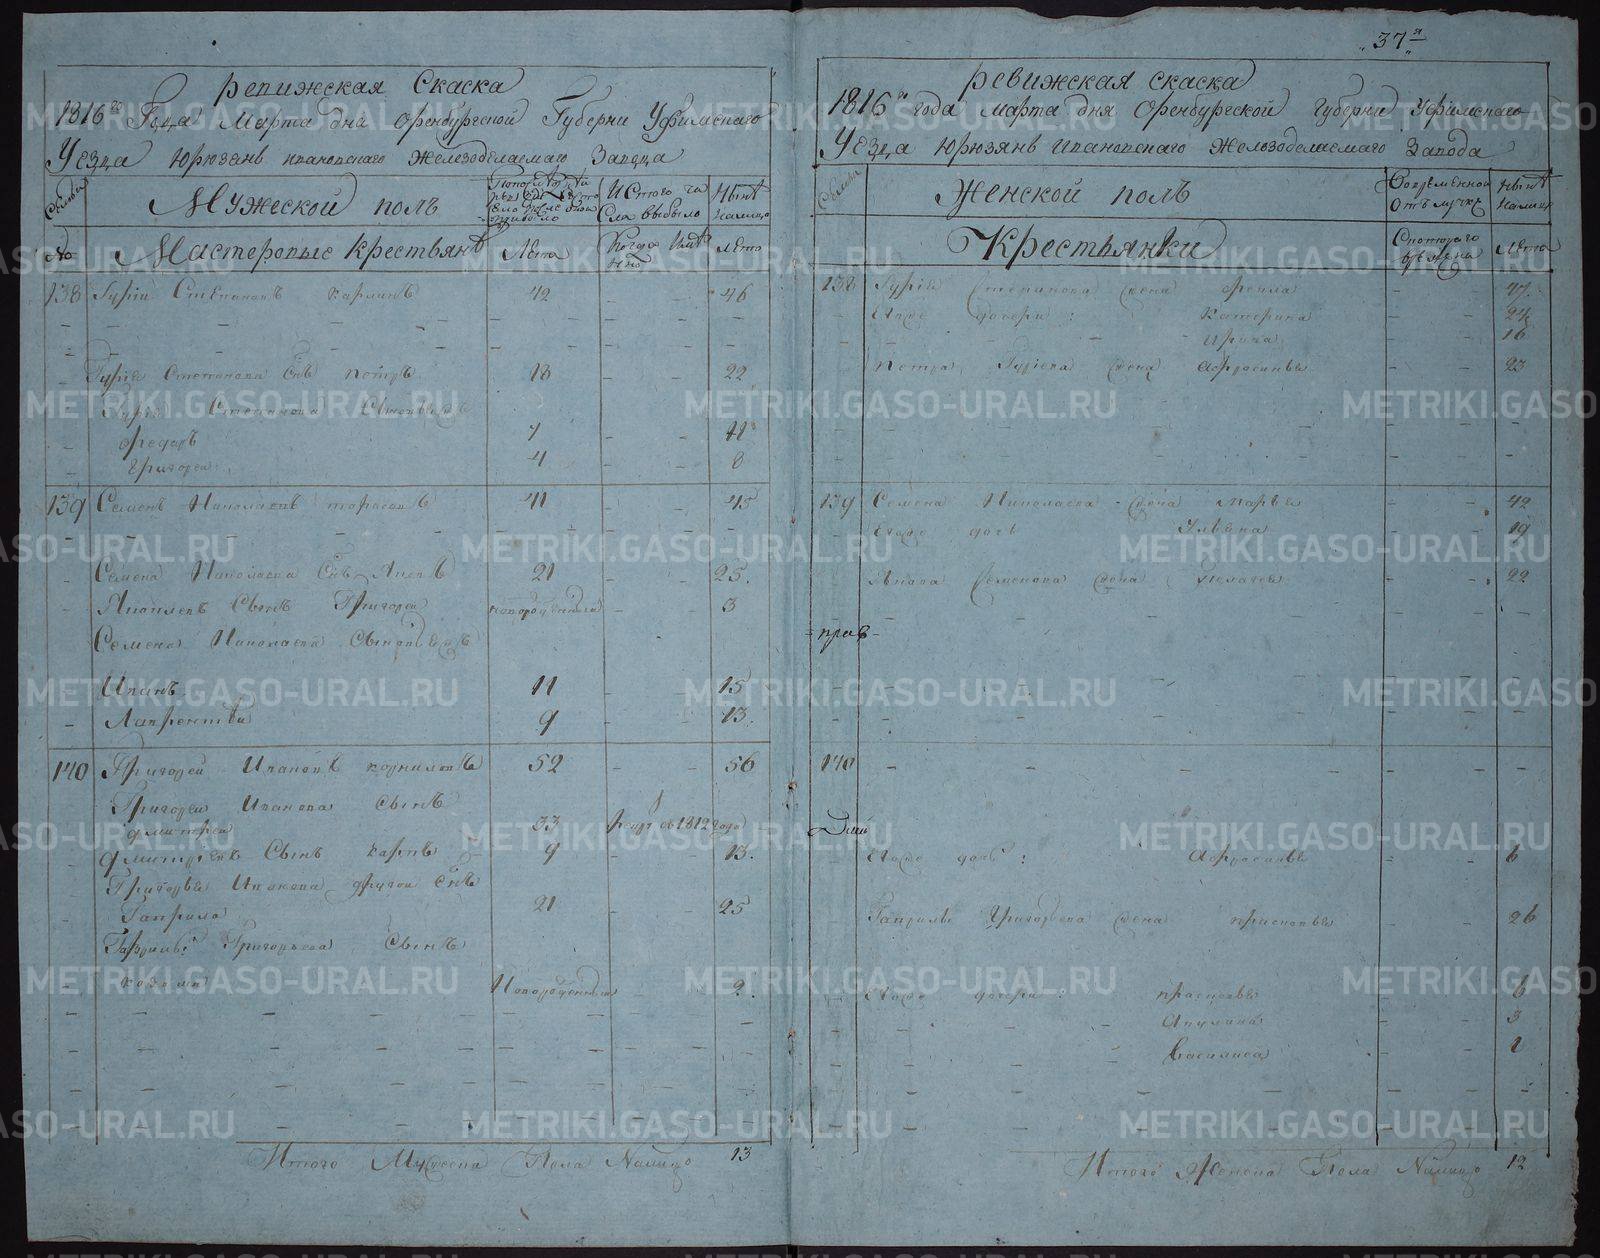 37я
Ревижская Скаска
1816го Года Марта дня Оренбургской Губерни Уфимскаго
Уезда Юрюзань Ивановскаго Железоделаемаго Завода
Семьи
Мужеской полъ
Изтого числа выбыло
Ныне налицо
№
Мастеровые крестьяне
Лета
Когда имянно
лета
138 Гурiи Степановъ Карлинъ 42 46
Гурiя Степанова Снъ Петръ 18 22
Гурiя Степанова Сыновья
Федоръ 7 11
Григореи 4 8
139 Семенъ Николаевъ тарасовъ 41 45
Семена Николаева Снъ Яковъ 21 25.
Яковлевъ Сынъ Григореи новорожденныи 3
Семена Николаева Сыновья
Иванъ 11 15
Лаврентеи 9 13.
140 Григореи Ивановъ корниловъ 52 56
Григореи Иванова Сынъ
дмитреи 33 рекрт въ 1812 годе
дмитрiевъ Сынъ карпъ 9 13.
Григорья Иванова другои Снъ
Гаврила 21 25
Гаврилы Григорьева Сынъ
козьма Новорожденныи 2
Итого Мужеска Пола Налицо 13
Ревижская Скаска
1816го года марта дня Оренбургской Губерни Уфимскаго
Уезда Юрюзань Ивановскаго Железоделаемаго Завода
Семьи
Женской полъ
Вовременной отълучке
Ныне налицо
Крестьянки
Скотораго времена
Лета
138 Гурiя Степанова жена Фекла 47.
Ево же дочери: Катерина 24
Ирина 16
Петра Гурiева жена Афросинья 23
139 Семена Николаева жена Марья 42
Ево же дочь Ульяна 19
Якова Семенова жена Пелагея 22
прав
140
Дмит
Ево же дочь: Афросинья 6
Гаврилы Григорьева жена прасковья 26
Ево же дочери: прасковья 6
Акулина 3
Василиса 1
Итого Женска Пола Налицо 12
METRIKI.GASO-URAL.RU